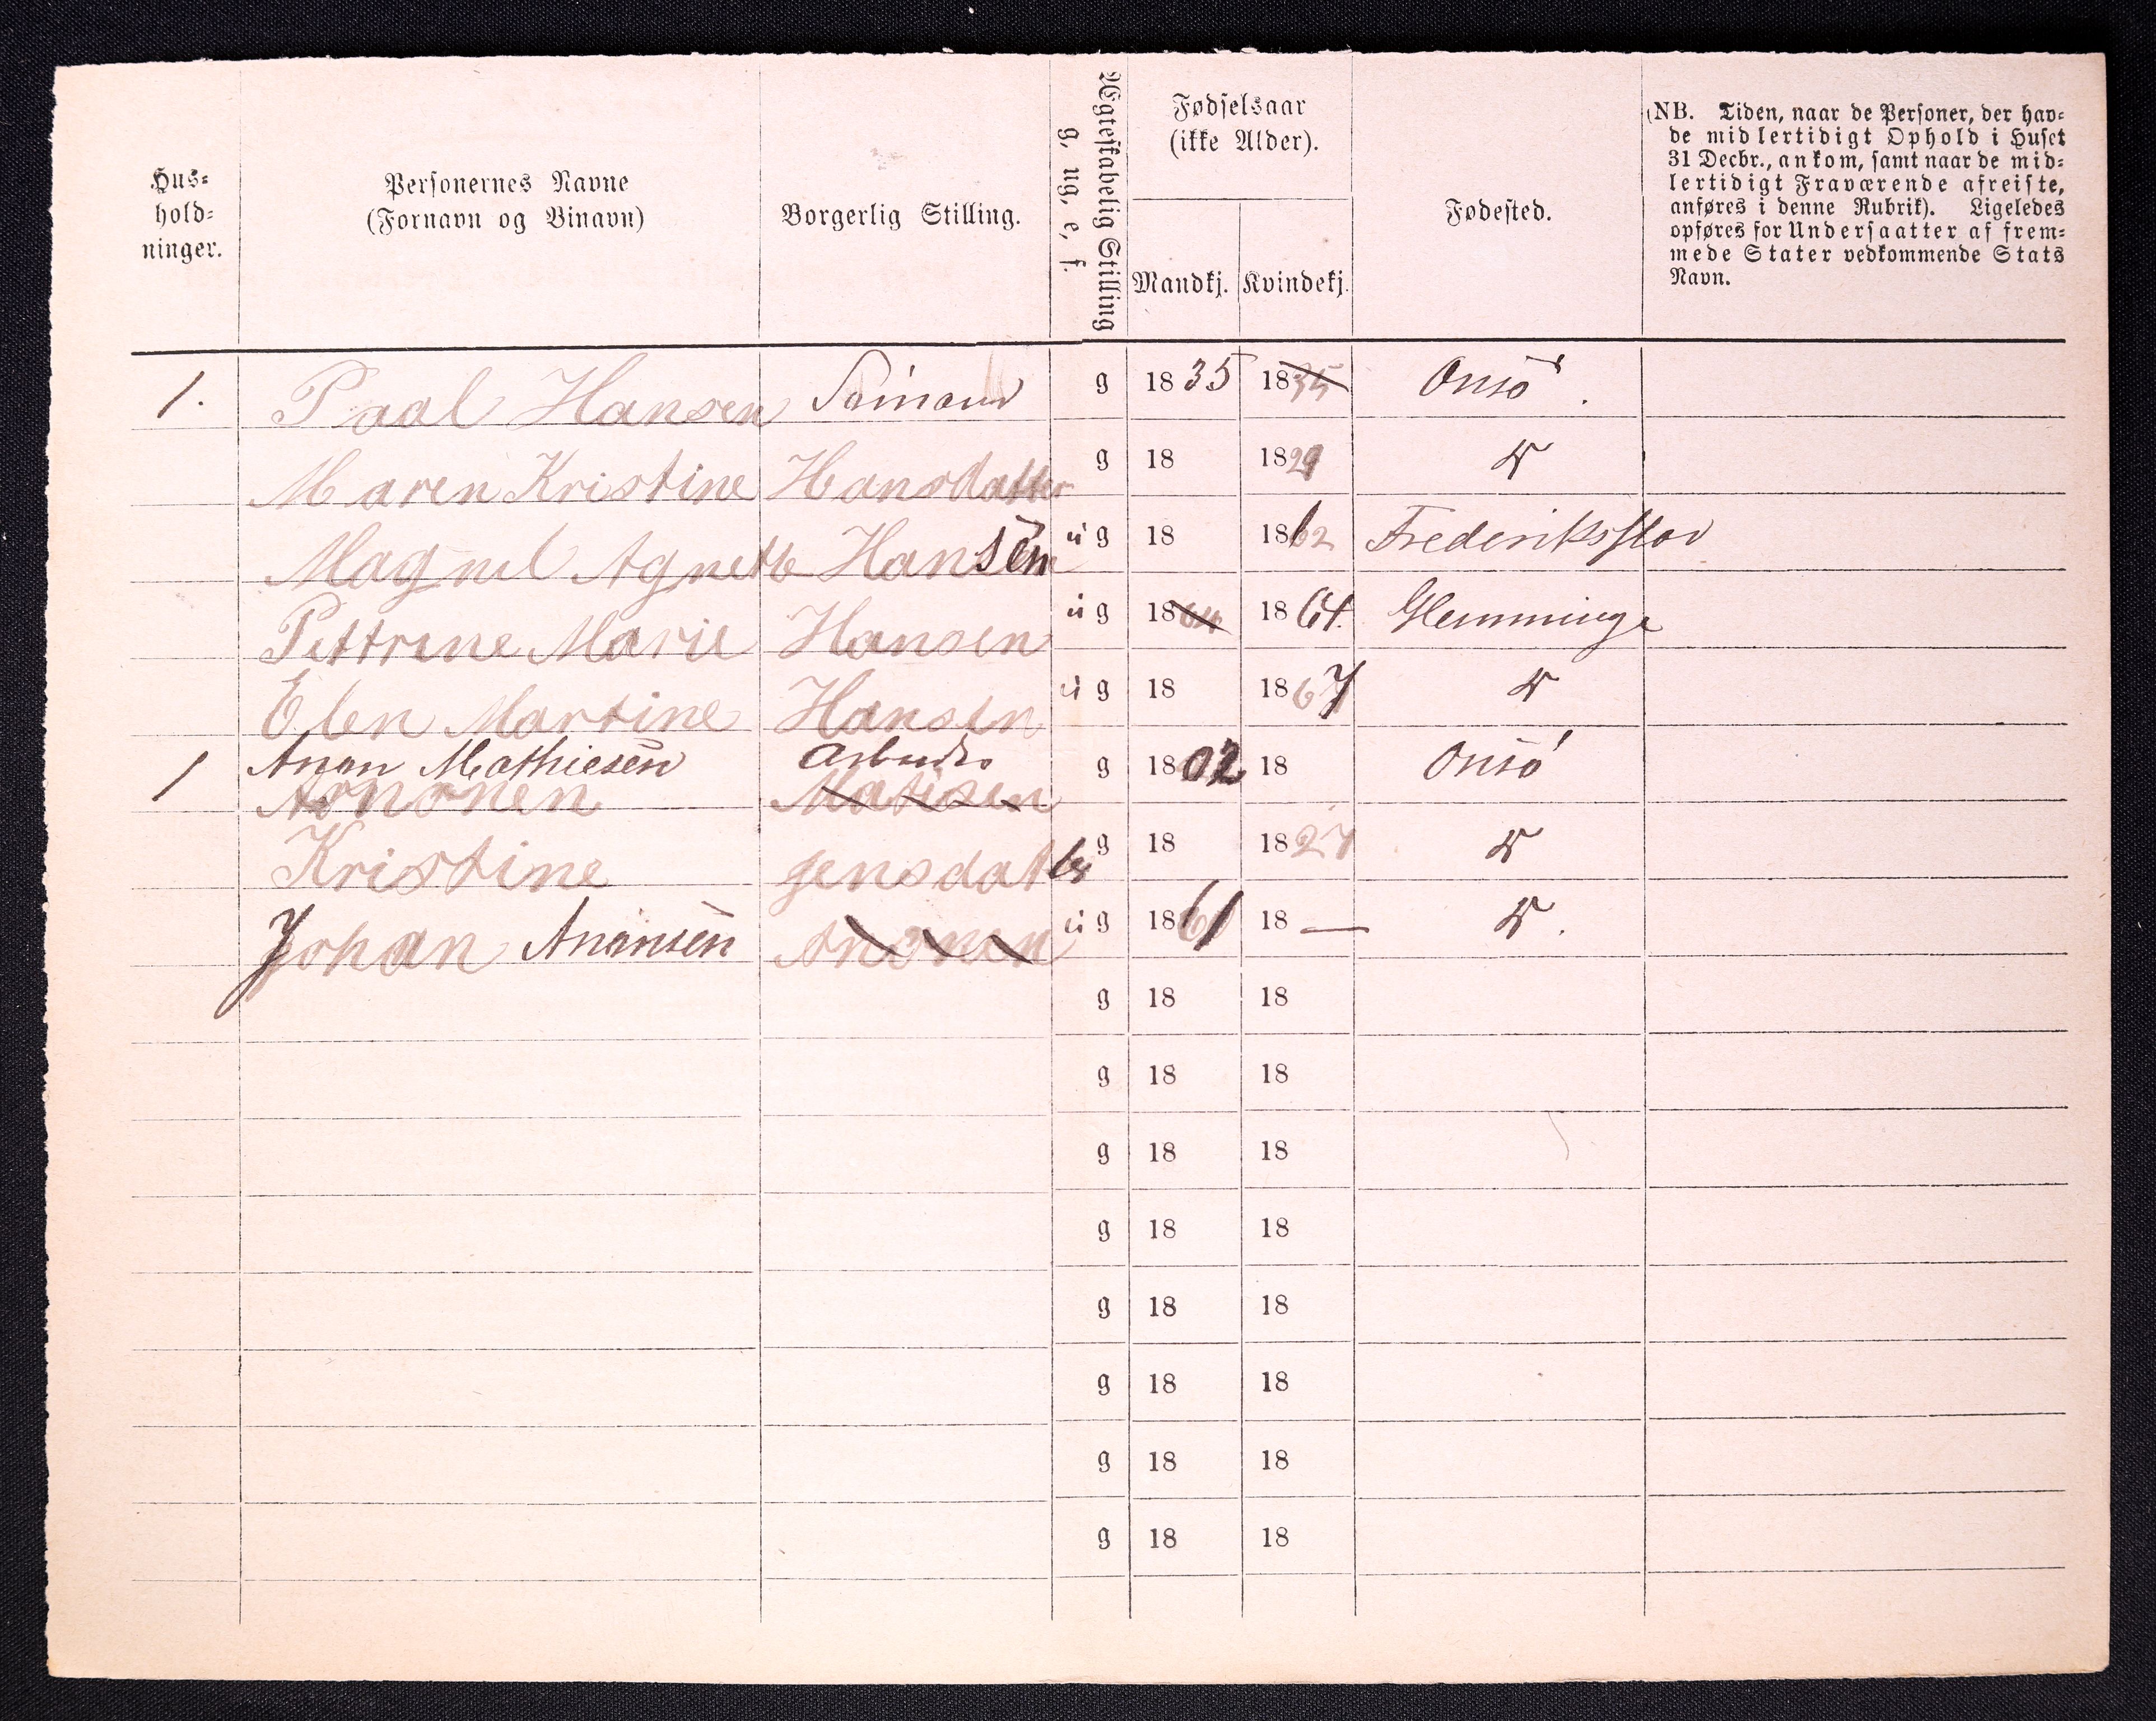 Hus-
hold-
ninger.
Personernes Navne
(Fornavn og Binavn)
Borgerlig Stilling.
Ægteskabelig Stilling
g, ug, e, f.
Fødselsaar
(ikke Alder).
Mandkj. Kvindekj.
Fødested.
(NB. Tiden, naar de Personer, der hav-
de midlertidigt Ophold i Huset
31 Decbr., ankom, samt naar de mid-
lertidigt Fraværende afreiste,
anføres i denne Rubrik). Ligeledes
opføres for Undersaatter af frem-
mede Stater vedkommende Stats
Navn.
1. Paal Hansen Sömand g 1835 1835 Onsö.
Maren Kristine Hansdatter g 18 1829 "
Magnil Agnette Hansen ug 18 1862 Frederiksstad
Pettrine Marie Hansen ug 1864 1864. Glemminge
Elen Martine Hansen ug 18 1867 "
1 Anon Mathiesen Arbeider g 1802 18 Onsö
Matisen
Kristine Jensdatter g 18 1827 "
Johan Anonsen ug 1861 18 — "
g 18 18
g 18 18
g 18 18
g 18 18
g 18 18
g 18 18
g 18 18
g 18 18